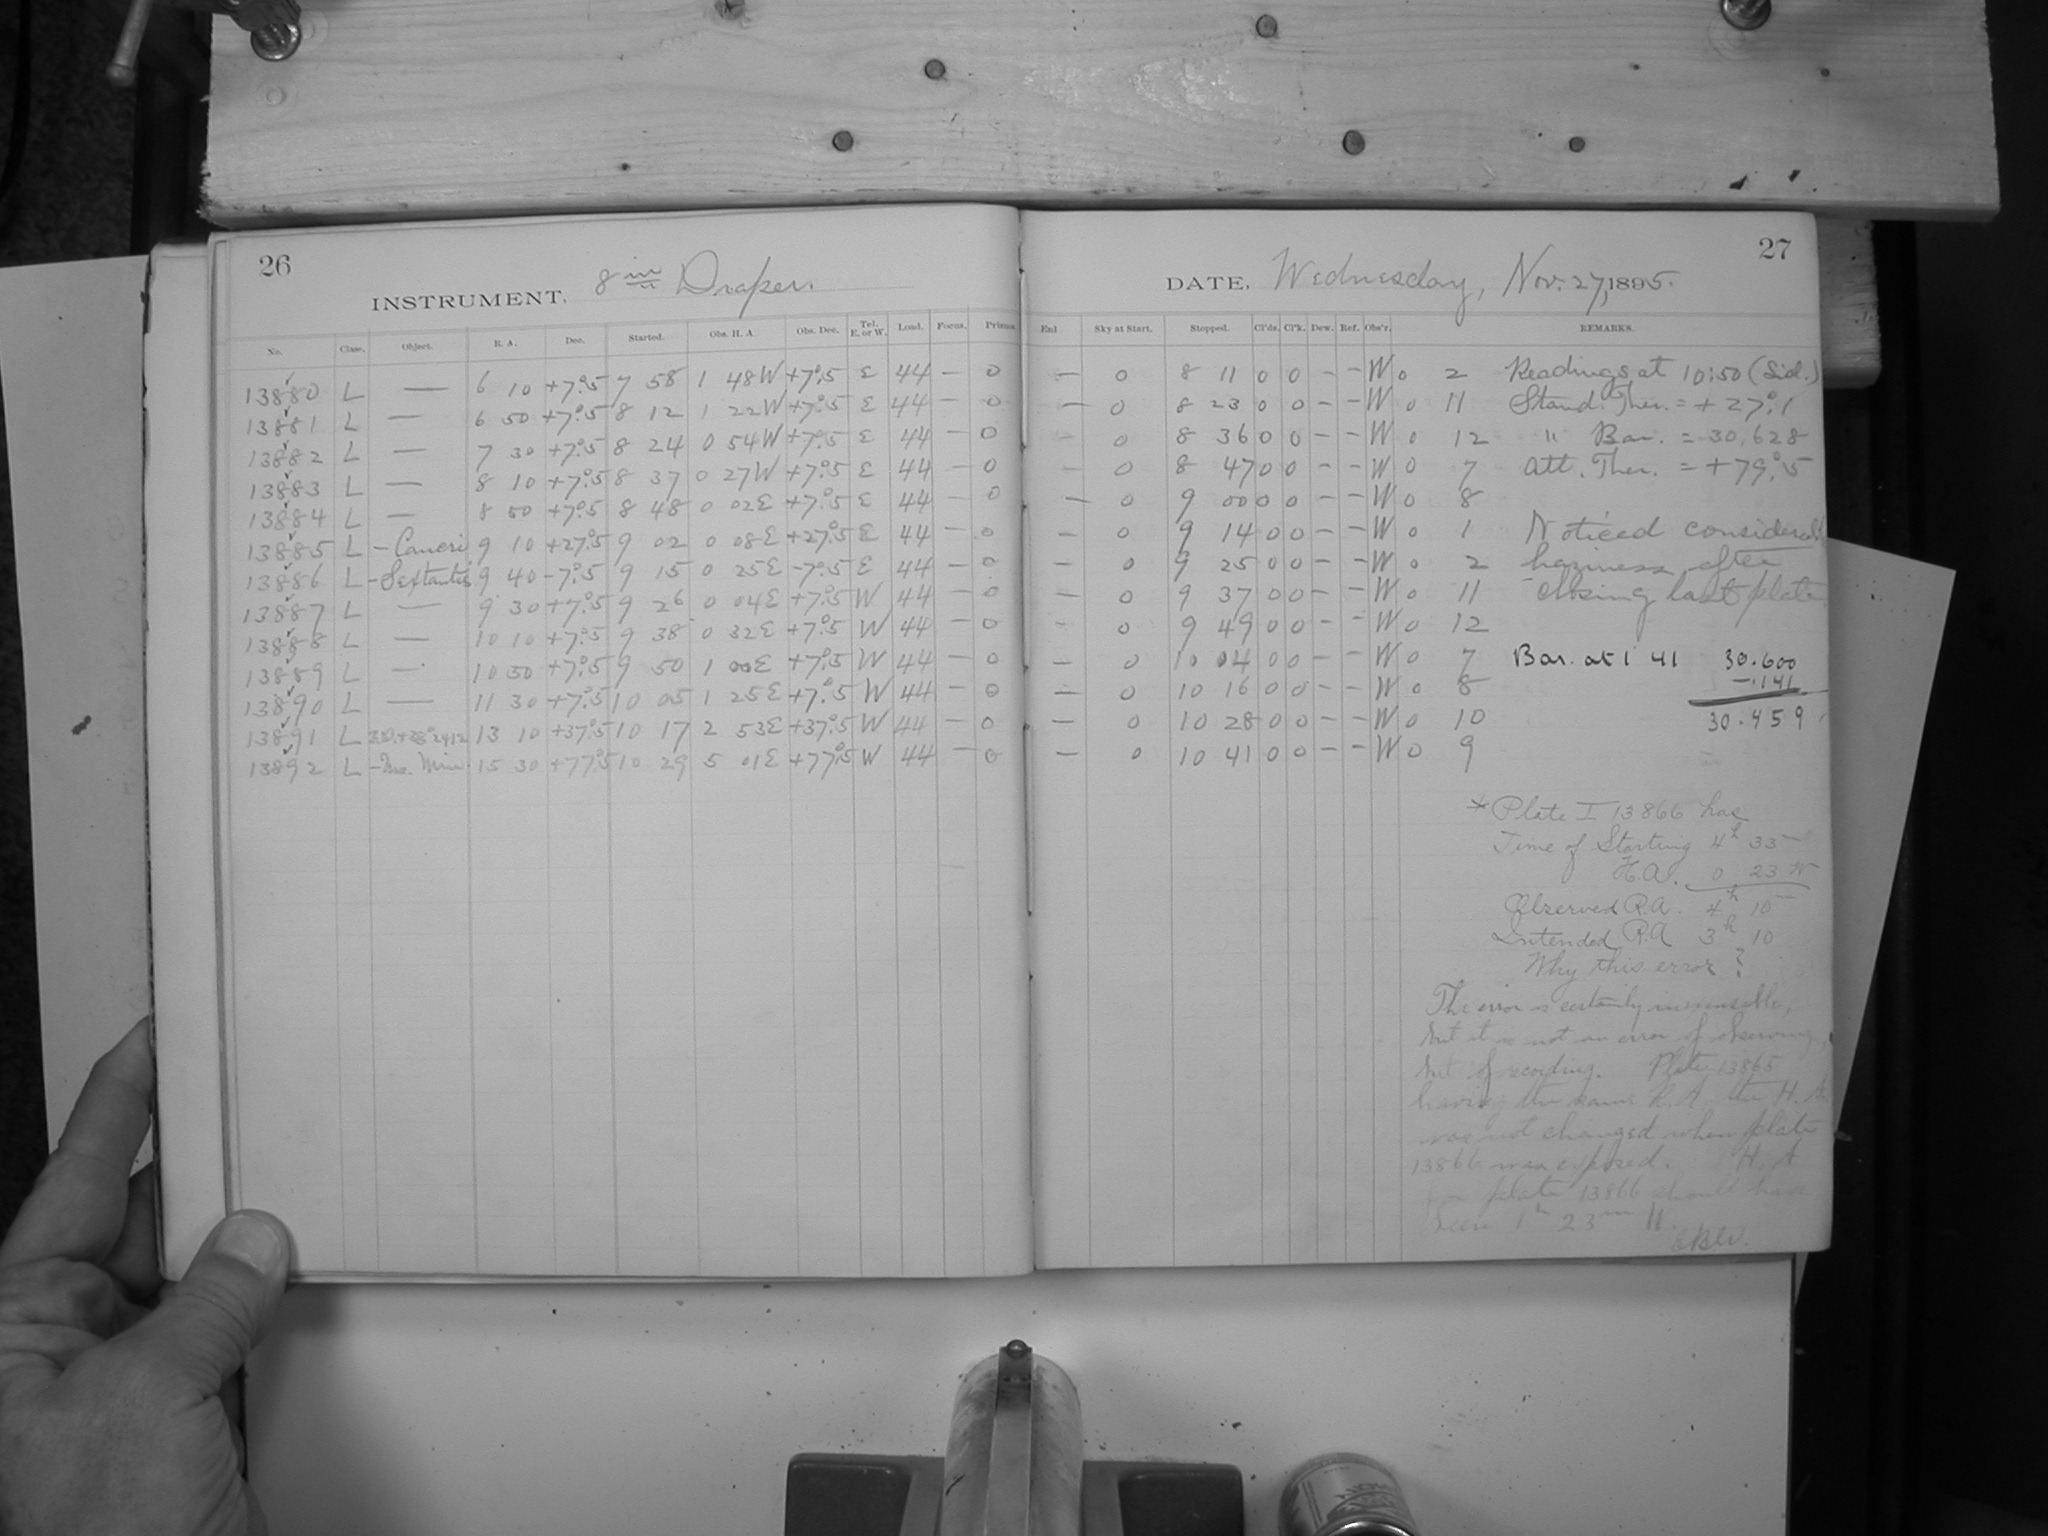 26
INSTRUMENT. 8 in Draper.
No. Class. Object. R. A. Dec. Started. Obs. H. A. Obs. Dec. Tel. E. or W. Load. Focus. Prisms
13880 L — 6 10 +7°.5 7 58 1 48W +7°.5 E 44 — 0
13881 L — 6 50 +7°.5 8 12 1 22W +7°.5 E 44 — 0
13882 L — 7 30 +7°.5 8 24 0 54W +7°.5 E 44 — 0
13883 L — 8 10 +7°.5 8 37 0 27W +7°.5 E 44 — 0
13884 L — 8 50 +7°.5 8 48 0 02E +7°.5 E 44 — 0
13885 L – Cancri 9 10 +27°.5 9 02 0 08E +27°.5 E 44 — 0
13886 L – Sextantis 9 40 -7°.5 9 15 0 25E -7°.5 E 44 — 0
13887 L — 9 30 +7°.5 9 26 0 04E +7°.5 W 44 — 0
13888 L — 10 10 +7°.5 9 38 0 32E +7°.5 W 44 — 0
13889 L — 10 50 +7°.5 9 50 1 00E +7°.5 W 44 — 0
13890 L — 11 30 +7°.5 10 05 1 25E +7°.5 W 44 — 0
13891 L +38°2412 13 10 +37°.5 10 17 2 53E +37°.5 W 44 — 0
13892 L 15 30 +77°.5 10 29 5 01E +77°.5 W 44 — 0
27
DATE. Wednesday, Nov. 27, 1895.
Enl Sky at Start. Stopped. Cl'ds. Cl'k. Dew. Ref. Obs'r. REMARKS.
— 0 8 11 0 0 – – W 0 2 Readings at 10:50 (Sid.)
— 0 8 23 0 0 – – W 0 11 Stand. Ther. = +27°.1
— 0 8 36 0 0 – – W 0 12 " Bar. = 30.628
— 0 8 47 0 0 – – W 0 7 Att. Ther. = +79°.5
— 0 9 00 0 0 – – W 0 8
— 0 9 14 0 0 – – W 0 1 Noticed considerable
— 0 9 25 0 0 – – W 0 2 haziness after
— 0 9 37 0 0 – – W 0 11 closing last plate
— 0 9 49 0 0 – – W 0 12
— 0 10 04 0 0 – – W 0 7 Bar. at 1 41 30.600
— 0 10 16 0 0 – – W 0 8 –.141
— 0 10 28 0 0 – – W 0 10 30.459
— 0 10 41 0 0 – – W 0 9
* Plate I 13866 has
Time of Starting 4h 33m
H.A. 0 23 W
Observed R.A. 4h 10m
Intended R.A 3h 10
Why this error?
The error is certainly inexcusable,
but it is not an error of observing,
but of recording. Plate 13865
having the same R.A. the H.A.
was not changed when plate
13866 was exposed. H.A
for plate 13866 should have
been 1h 23m W.